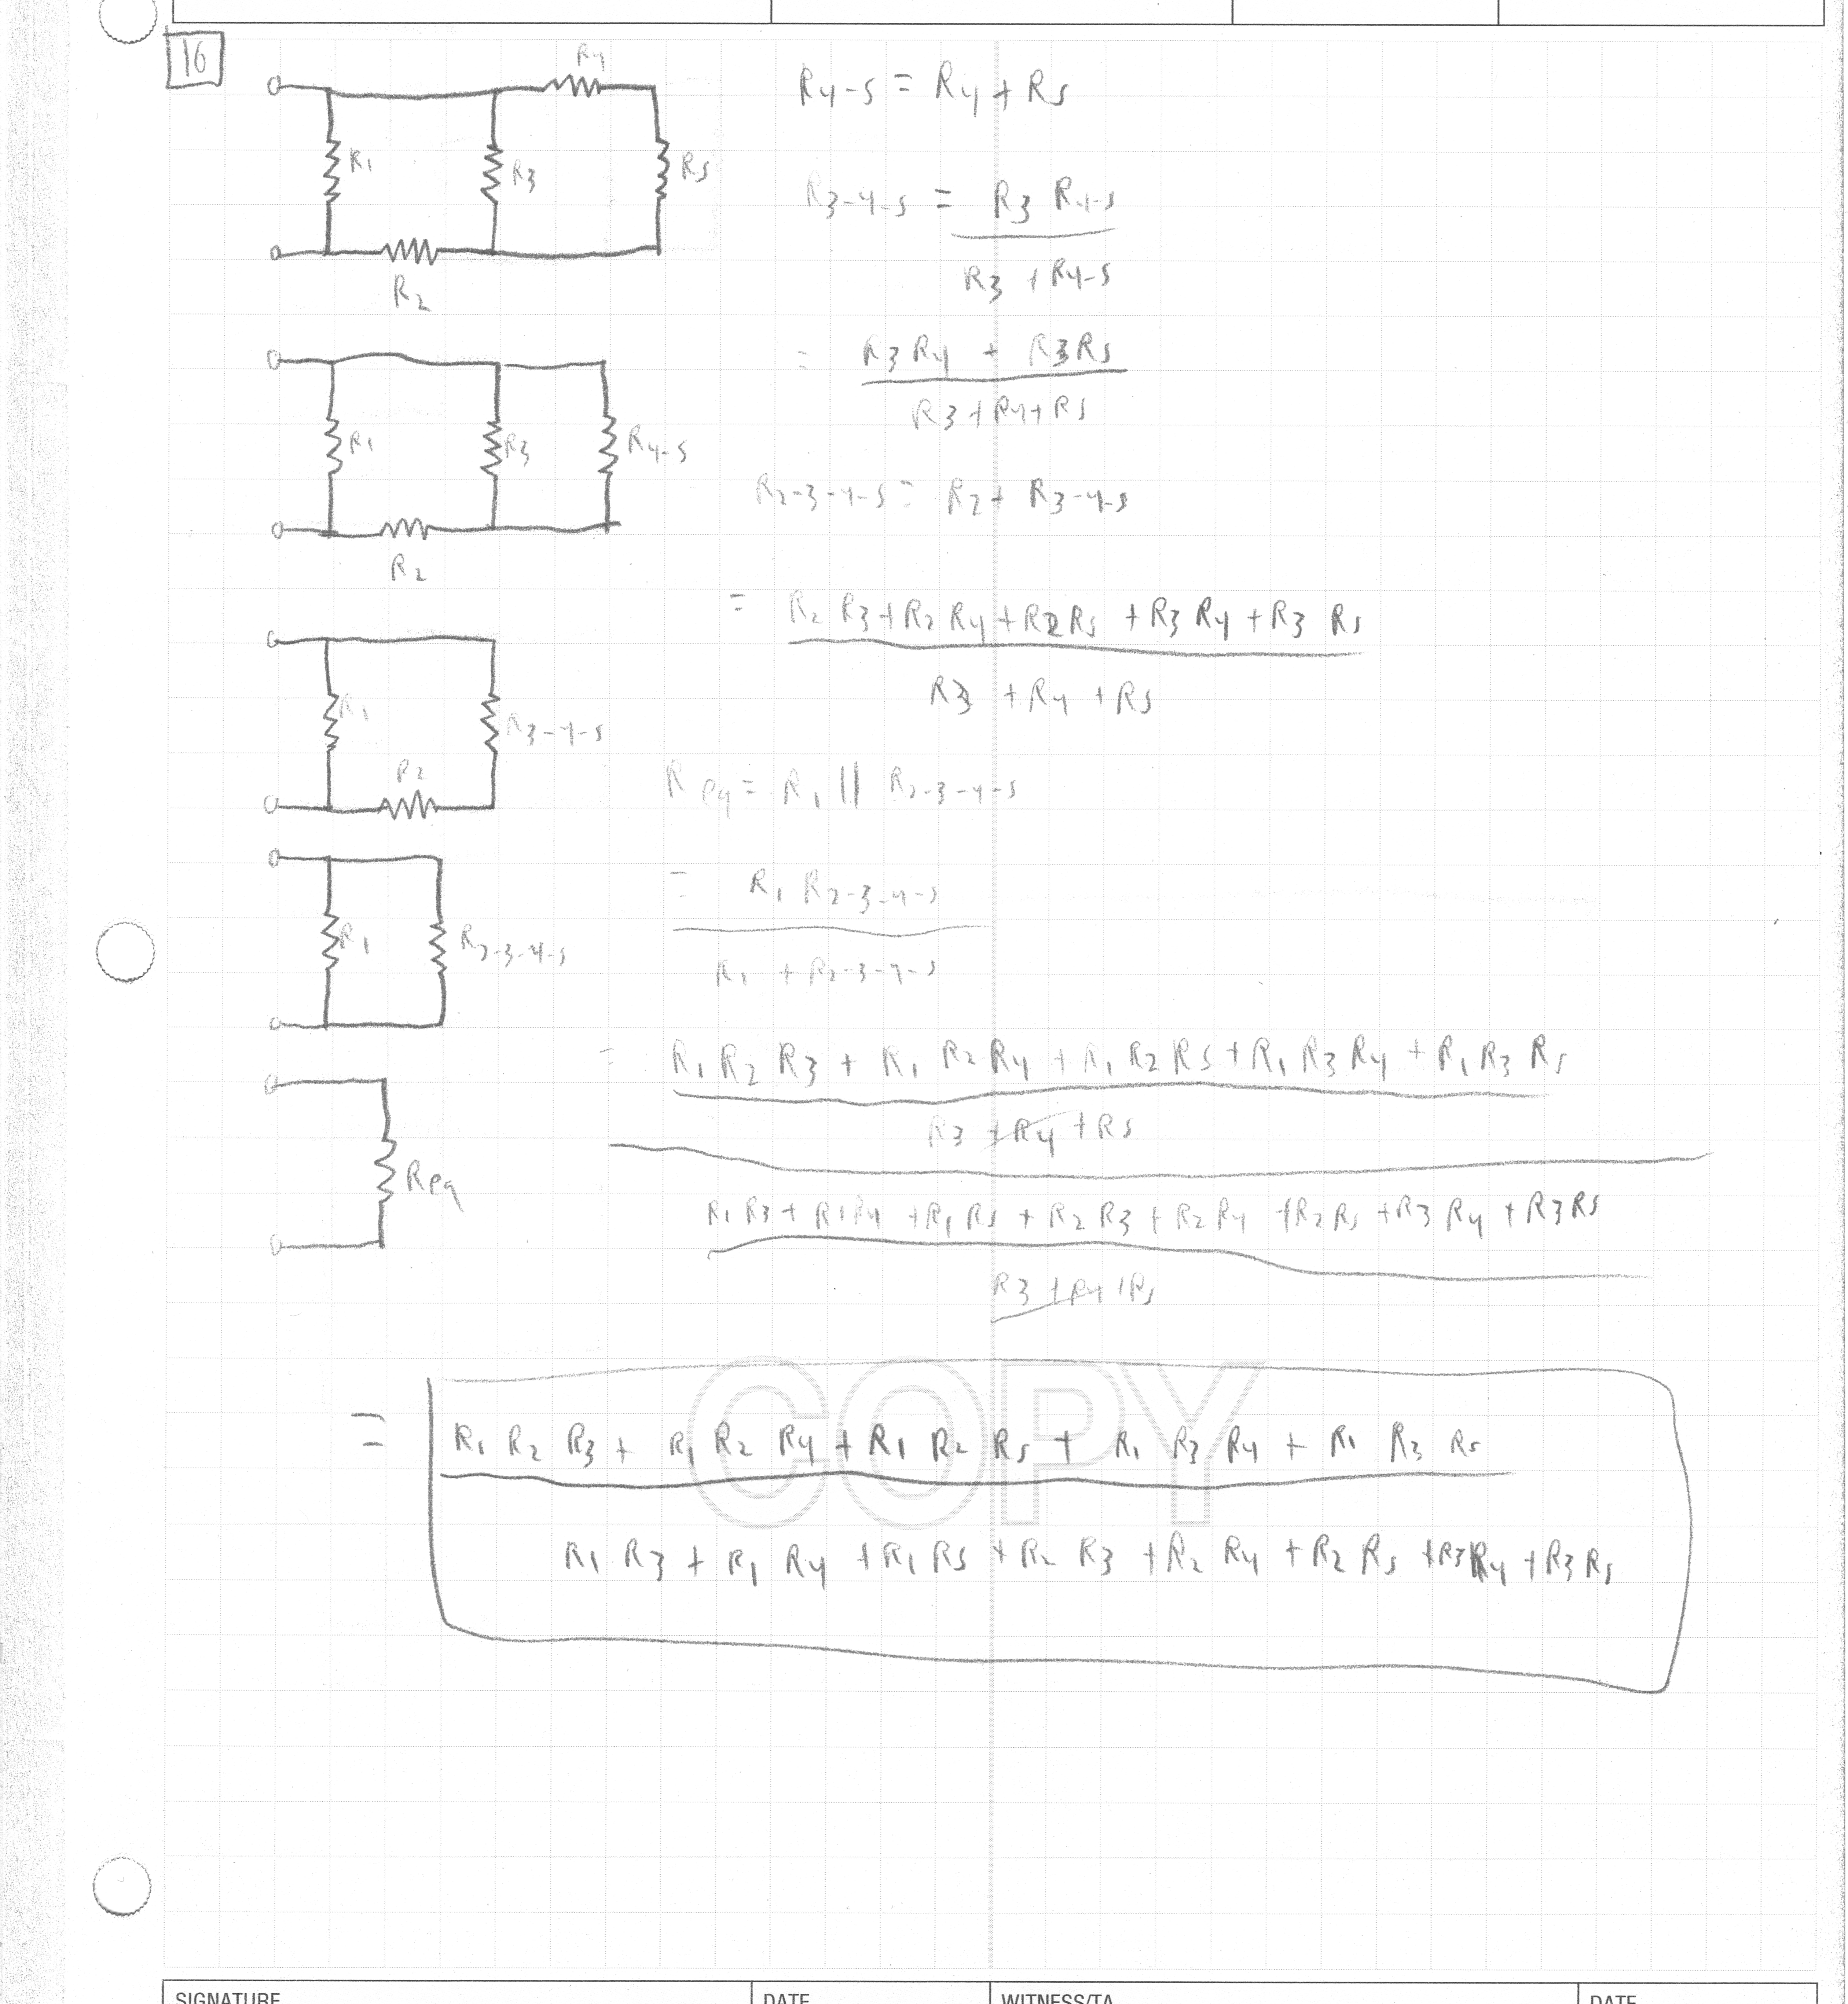 16
R4
R1
R3
R5
R2
R4-5 = R4 + R5
R3-4-5 = R3 R4-5
R3 + R4-5
= R3 R4 + R3 R5
R3 + R4 + R5
R1
R3
R4-5
R2
R2-3-4-5 = R2 + R3-4-5
= R2 R3 + R2 R4 + R2 R5 + R3 R4 + R3 R5
R3 + R4 + R5
R1
R3-4-5
R2
Req = R1 || R2-3-4-5
R1
R2-3-4-5
= R1 R2-3-4-5
R1 + R2-3-4-5
Req
= R1 R2 R3 + R1 R2 R4 + R1 R2 R5 + R1 R3 R4 + R1 R3 R5
R3 + R4 + R5
R1 R3 + R1 R4 + R1 R5 + R2 R3 + R2 R4 + R2 R5 + R3 R4 + R3 R5
R3 + R4 + R5
COPY
= R1 R2 R3 + R1 R2 R4 + R1 R2 R5 + R1 R3 R4 + R1 R3 R5
R1 R3 + R1 R4 + R1 R5 + R2 R3 + R2 R4 + R2 R5 + R3 R4 + R3 R5
SIGNATURE DATE WITNESS/TA DATE